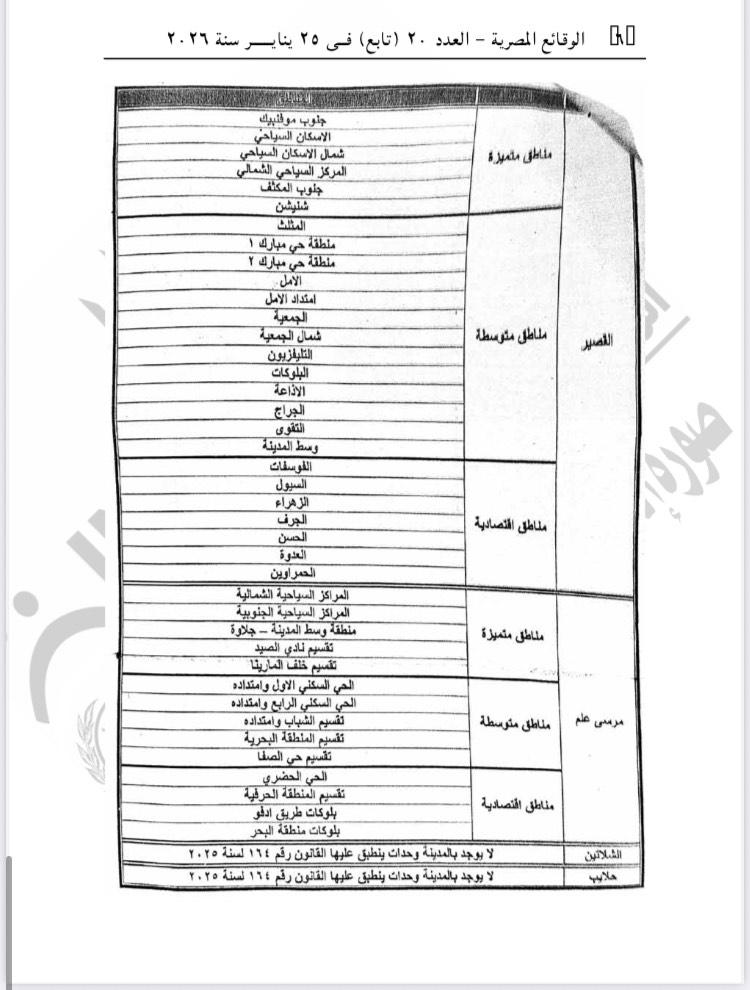 الوقائع المصرية – العدد ٢٠ (تابع) فـى ٢٥ ينايـــر سنة ٢٠٢٦
القصير
مناطق متميزة
جنوب موفنبيك
الاسكان السياحي
شمال الاسكان السياحي
المركز السياحي الشمالي
جنوب المكثف
شنيشن
مناطق متوسطة
المثلث
منطقة حي مبارك ١
منطقة حي مبارك ٢
الامل
امتداد الامل
الجمعية
شمال الجمعية
التليفزيون
البلوكات
الاذاعة
الجراج
التقوى
وسط المدينة
مناطق اقتصادية
الفوسفات
السيول
الزهراء
الجرف
الحسن
العدوة
الحمراوين
مرسى علم
مناطق متميزة
المراكز السياحية الشمالية
المراكز السياحية الجنوبية
منطقة وسط المدينة – جلاوة
تقسيم نادي الصيد
تقسيم خلف المارينا
مناطق متوسطة
الحي السكني الاول وامتداده
الحي السكني الرابع وامتداده
تقسيم الشباب وامتداده
تقسيم المنطقة البحرية
تقسيم حي الصفا
مناطق اقتصادية
الحي الحضري
تقسيم المنطقة الحرفية
بلوكات طريق ادفو
بلوكات منطقة البحر
الشلاتين
لا يوجد بالمدينة وحدات ينطبق عليها القانون رقم ١٦٤ لسنة ٢٠٢٥
حلايب
لا يوجد بالمدينة وحدات ينطبق عليها القانون رقم ١٦٤ لسنة ٢٠٢٥